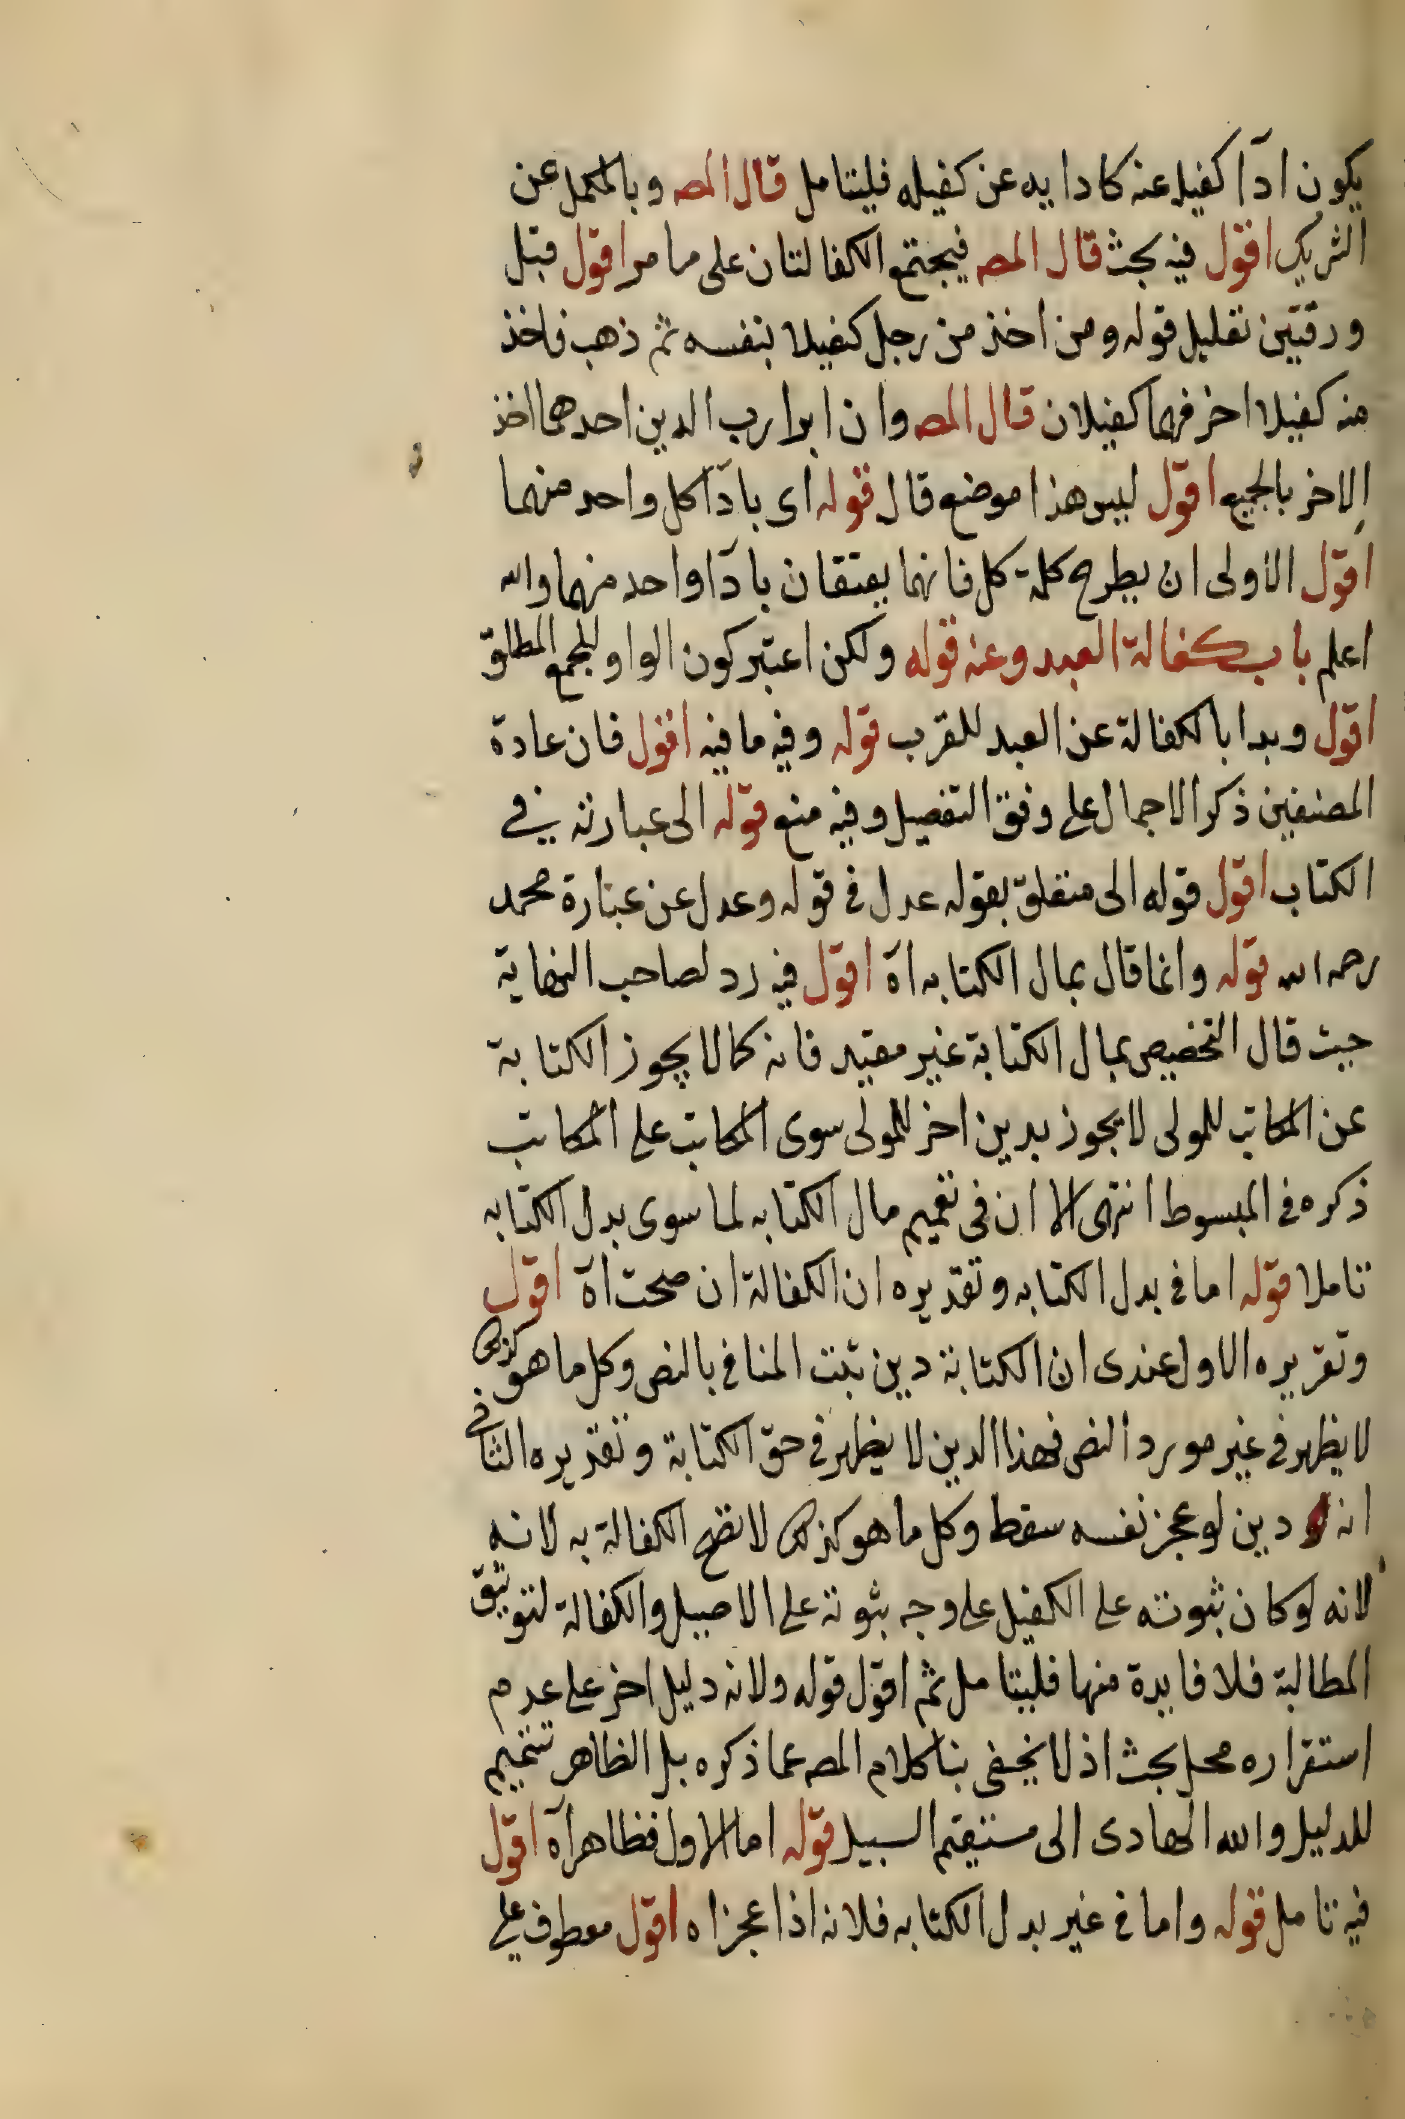 يكون ادآ كفيله عنه كادايه عن كفيله فليتامل قال المصـ وبالمكمل عن
الشريك اقول فيه بحث قال المصـ فيجتمع الكفالتان على ما مر اقول قبل
ورقتين تعليل قوله ومن اخذ من رجل كفيلا بنفسه ثم ذهب فاخذ
منه كفيلا اخر فهما كفيلان قال المصـ وان ابرا رب الدين احدهما اخذ
الاخر بالجميع اقول ليس هذا موضع قال قوله اى بادآ كل واحد منهما
اقول الاولى ان يطرح كلمة كل فانهما يعتقان بادآ واحد منهما والله
اعلم باب كفالة العبد وعنه قوله ولكن اعتبر كون الواو للجمع المطلق
اقول وبدا بالكفالة عن العبد للقرب قوله وفيه ما فيه اقول فان عادة
المصنفين ذكر الاجمال على وفق التفصيل وفيه منع قوله الى عبارته في
الكتاب اقول قوله الى متعلق بقوله عدل في قوله وعدل عن عبارة محمد
رحمه الله قوله وانما قال بمال الكتابه اه اقول فيه رد لصاحب النهاية
حيث قال التخصيص بمال الكتابة غير مفيد فانه كما لا يجوز الكتابة
عن المكاتب للمولى لا يجوز بدين اخر للمولى سوى المكاتب على المكاتب
ذكره في المبسوط انتهى الا ان فى تعميم مال الكتابه لما سوى بدل الكتابه
تاملا قوله اما في بدل الكتابه وتقديره ان الكفالة ان صحت اه اقول
وتقريره الاول عندى ان الكتابة دين يثبت المنافي بالنص وكل ما هو كذلك
لا يظهر في غير مورد النص فهذا الدين لا يظهر في حق الكتابة وتقديره الثاني
انه دين لو عجز نفسه سقط وكل ما هو كذلك لا تصح الكفالة به لانه
لانه لو كان ثبوته على الكفيل على وجه ثبوته على الاصيل والكفالة لتوثيق
المطالبة فلا فايدة منها فليتامل ثم اقول قوله ولانه دليل اخر على عدم
استقراره محل بحث اذ لا يخفى بنا كلام المصـ عما ذكره بل الظاهر تتميم
للدليل والله الهادى الى مستقيم السبيل قوله اما الاول فظاهر اه اقول
فيه تامل قوله واما في غير بدل الكتابه فلانه اذا عجز اه اقول معطوف على